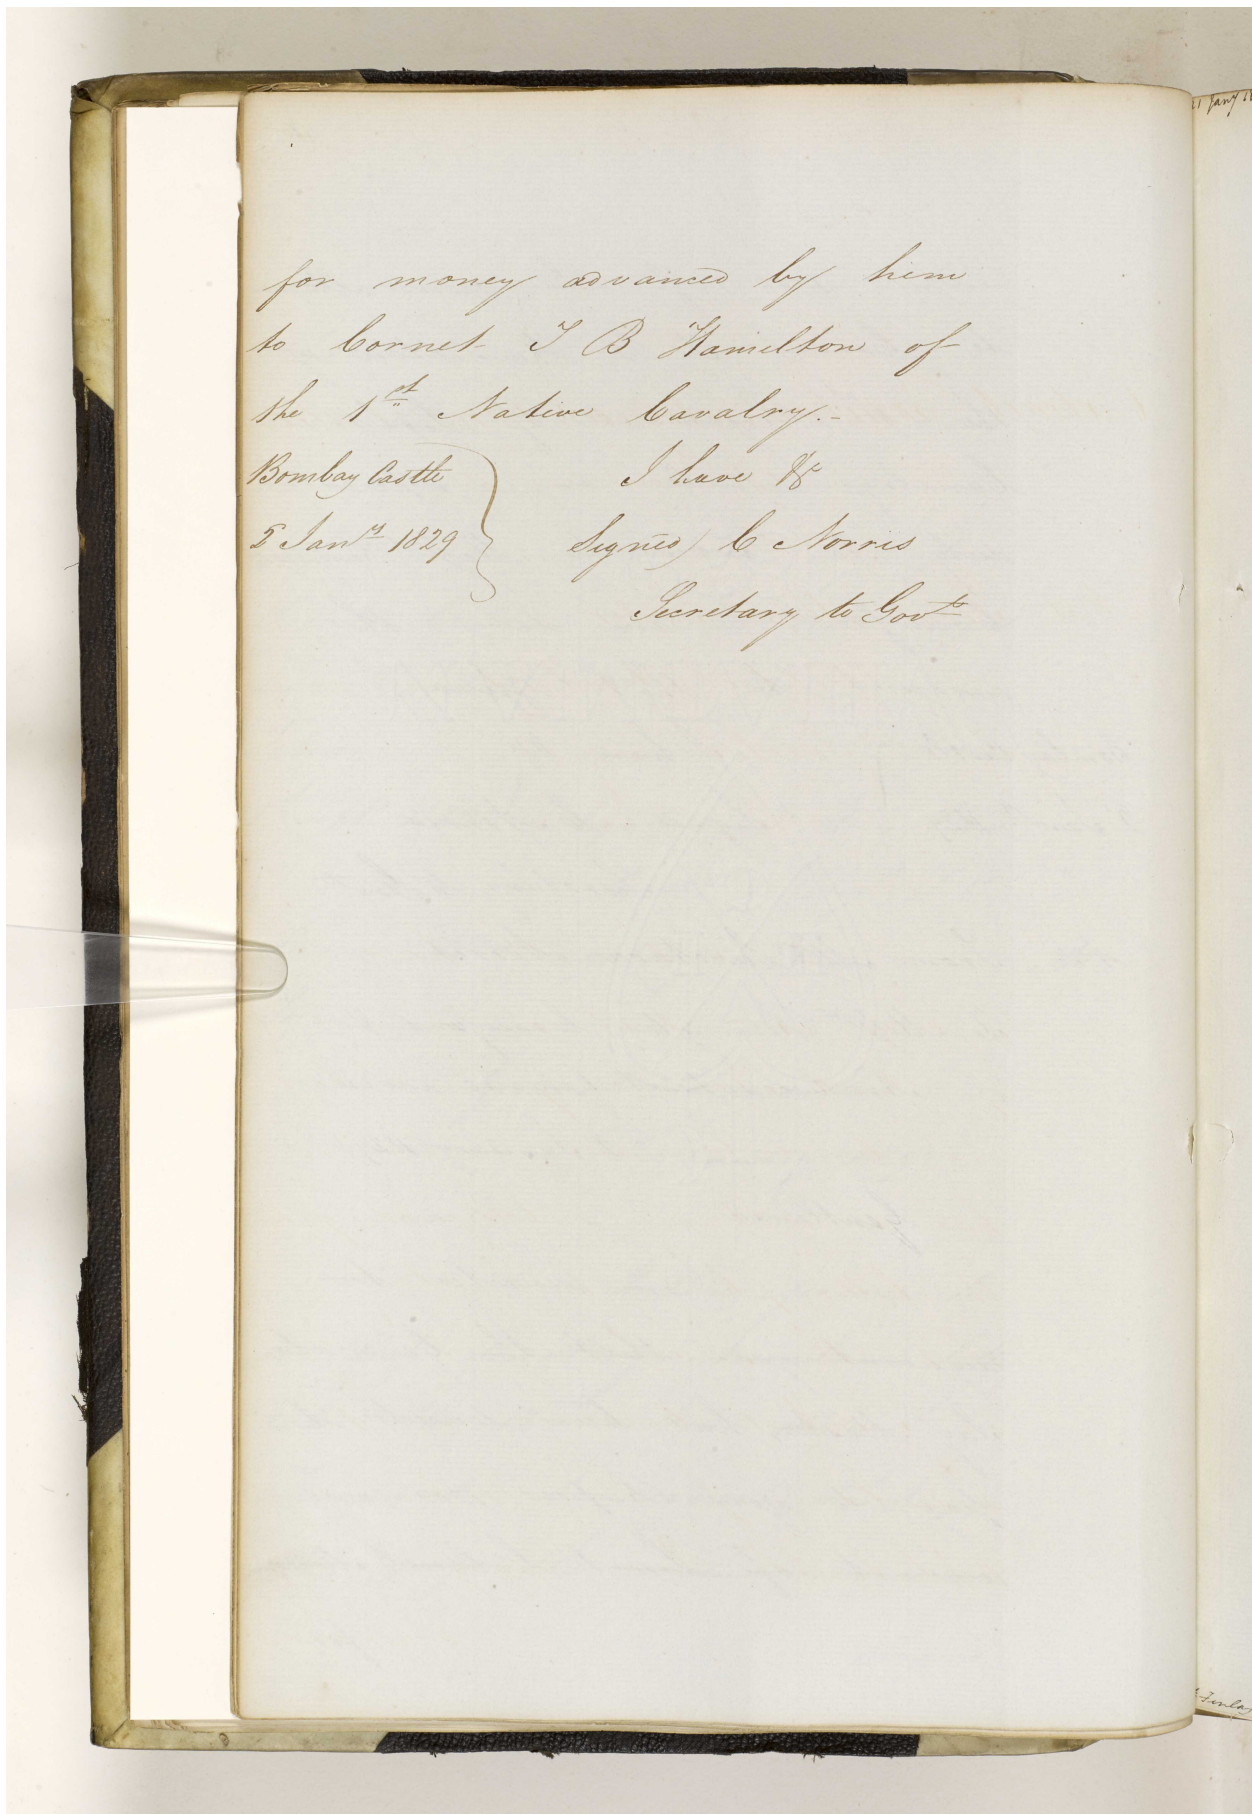 for money advanced by him
to Cornet T B Hamilton of
the 1st Native Cavalry.-
Bombay Castle
I have &c
5 Jany 1829
Signed) C Norris
Secretary to Govt
Jany